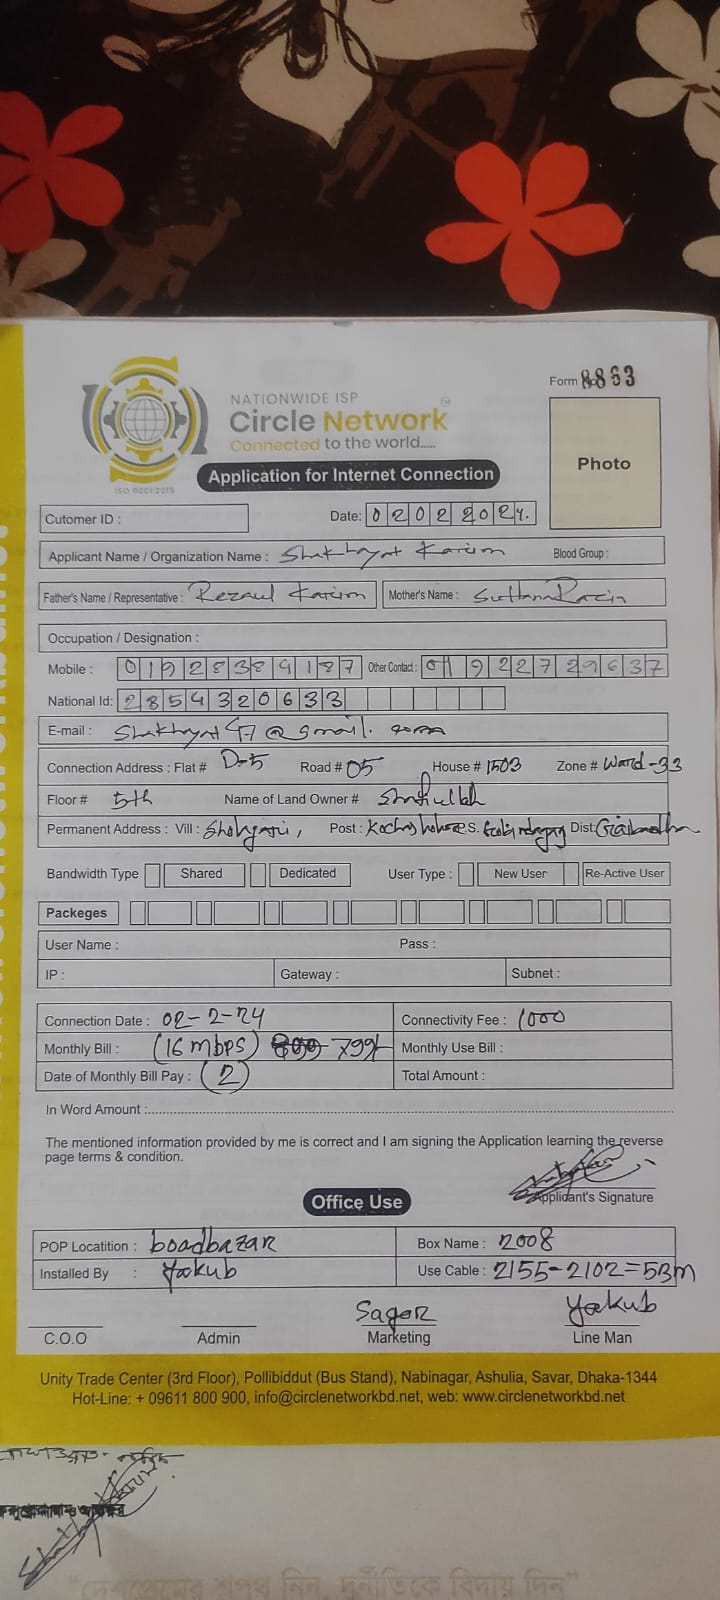 NATIONWIDE ISP
Circle Network
Connected to the world.....
ISO 9001:2015
Form 8863
Photo
Application for Internet Connection
Cutomer ID :
Date: 02022024.
Applicant Name / Organization Name : Shakhayat Karim Blood Group :
Father's Name / Representative : Rezaul Karim Mother's Name : Sultana Razia
Occupation / Designation :
Mobile : 01928384187 Other Contact : 01922729637
National Id: 2854320633
E-mail : Shakhayat47@gmail.com
Connection Address : Flat # D-5 Road # 05 House # 1503 Zone # Ward-33
Floor # 5th Name of Land Owner # Shafiullah
Permanent Address : Vill : Post : P.S. Dist: Gaibandha
Bandwidth Type Shared Dedicated User Type : New User Re-Active User
Packeges
User Name : Pass :
IP : Gateway : Subnet :
Connection Date : 02-2-24 Connectivity Fee : 1000
Monthly Bill : (16 mbps) 800 799/- Monthly Use Bill :
Date of Monthly Bill Pay : (2) Total Amount :
In Word Amount :
The mentioned information provided by me is correct and I am signing the Application learning the reverse
page terms & condition.
Applicant's Signature
Office Use
POP Locatition : boadbazar Box Name : 2008
Installed By : Yakub Use Cable : 2155-2102=53m
Sagor Yakub
C.O.O Admin Marketing Line Man
Unity Trade Center (3rd Floor), Pollibiddut (Bus Stand), Nabinagar, Ashulia, Savar, Dhaka-1344
Hot-Line: + 09611 800 900, info@circlenetworkbd.net, web: www.circlenetworkbd.net
“দেশপ্রেমের শপথ নিন, দুর্নীতিকে বিদায় দিন”